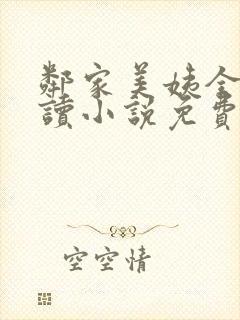 鄰家美姨全
讀小說免費
空空情